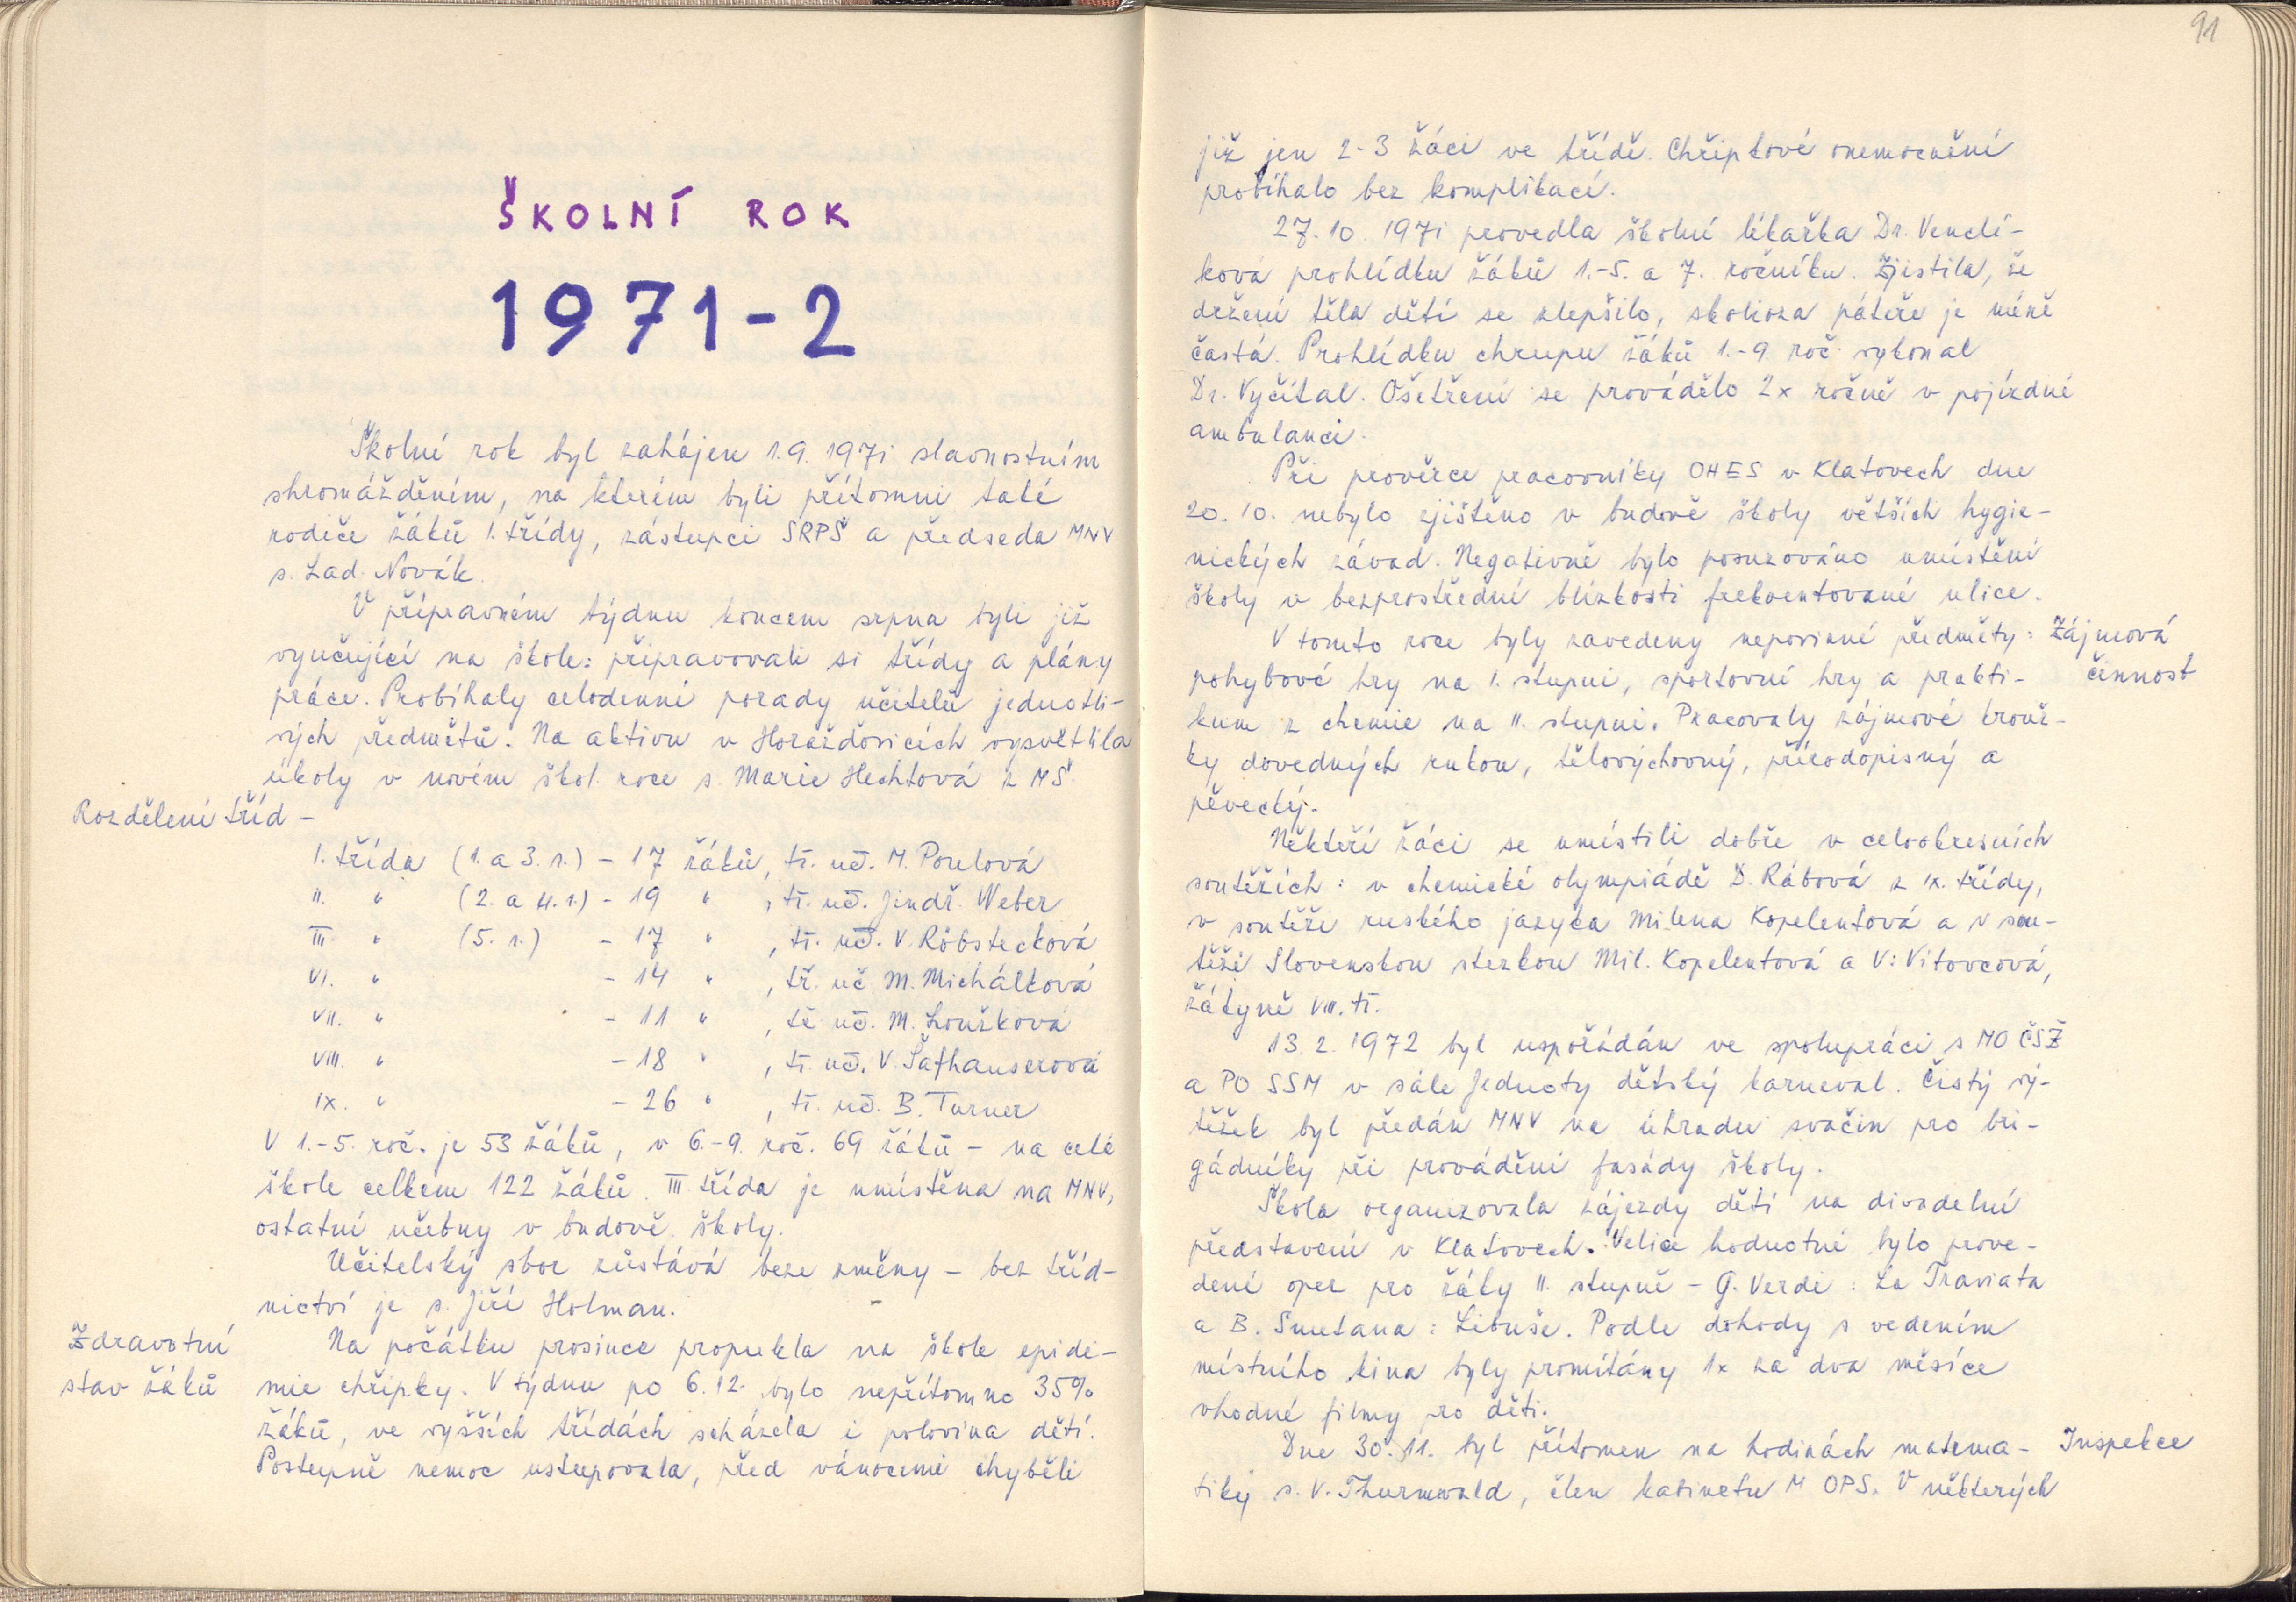 ŠKOLNÍ ROK
1971-2
Školní rok byl zahájen 1.9.1971 slavnostním
shromážděním, na kterém byli přítomni také
rodiče žáků 1. třídy, zástupci SRPŠ a předseda MNV
s. Lad. Novák.
V přípravném týdnu koncem srpna byli již
vyučující na škole: připravovali si třídy a plány
práce. Probíhaly celodenní porady učitelů jednotli-
vých předmětů. Na aktivu v Horažďovicích vysvětlila
úkoly v novém škol. roce s. Marie Hechtová z MŠ.
Rozdělení tříd -
I. třída (1. a 3. r.) - 17 žáků, tř. uč. M. Porelová
II. " (2. a 4. r.) - 19 " , tř. uč. Jindř. Weber
III. " (5. r.) - 17 " , tř. uč. V. Röbstecková
VI. " - 14 " , tř. uč. M. Michálková
VII. " - 11 " , tř. uč. M. Loužková
VIII. " - 18 " , tř. uč. V. Šafhauserová
IX. " - 26 " , tř. uč. B. Turner
V 1.-5. roč. je 53 žáků, v 6.-9. roč. 69 žáků - na celé
škole celkem 122 žáků. III. třída je umístěna na MNV,
ostatní učebny v budově školy.
Učitelský sbor zůstává beze změny - bez tříd-
nictví je s. Jiří Holman.
Zdravotní
stav žáků
Na počátku prosince propukla na škole epide-
mie chřipky. V týdnu po 6.12. bylo nepřítomno 35%
žáků, ve vyšších třídách scházela i polovina dětí.
Postupně nemoc ustupovala, před vánocemi chyběli
91
již jen 2-3 žáci ve třídě. Chřipkové onemocnění
probíhalo bez komplikací.
27.10. 1971 provedla školní lékařka Dr. Vendí-
ková prohlídku žáků 1.-5. a 7. ročníku. Zjistila, že
držení těla dětí se zlepšilo, skolioza páteře je méně
častá. Prohlídku chrupu žáků 1.-9. roč. vykonal
Dr. Vyčítal. Ošetření se provádělo 2x ročně v pojízdné
ambulanci.
Při prověrce pracovníky OHES v Klatovech dne
20.10. nebylo zjištěno v budově školy větších hygie-
nických závad. Negativně bylo posuzováno umístění
školy v bezprostřední blízkosti frekventované ulice.
V tomto roce byly zavedeny nepovinné předměty:
Zájmová
činnost
pohybové hry na 1. stupni, sportovní hry a prakti-
kum z chemie na II. stupni. Pracovaly zájmové krouž-
ky dovedných rukou, tělovýchovný, přírodopisný a
pěvecký.
Někteří žáci se umístili dobře v celookresních
soutěžích: v chemické olympiádě D. Rábová z IX. třídy,
v soutěži ruského jazyka Milena Kopelentová a v sou-
těži Slovenskou stezkou Mil. Kopelentová a V. Vítovcová,
žákyně VIII. tř.
13.2.1972 byl uspořádán ve spolupráci s MO ČSŽ
a PO SSM v sále Jednoty dětský karneval. Čistý vý-
těžek byl předán MNV na úhradu svačin pro bri-
gádníky při provádění fasády školy.
Škola organizovala zájezdy dětí na divadelní
představení v Klatovech. Velice hodnotné bylo prove-
dení oper pro žáky II. stupně - G. Verdi: La Traviata
a B. Smetana: Libuše. Podle dohody s vedením
místního kina byly promítány 1x za dva měsíce
vhodné filmy pro děti.
Dne 30.11. byl přítomen na hodinách matema-
Inspekce
tiky s. V. Thurnwald, člen kabinetu M OPS. V některých